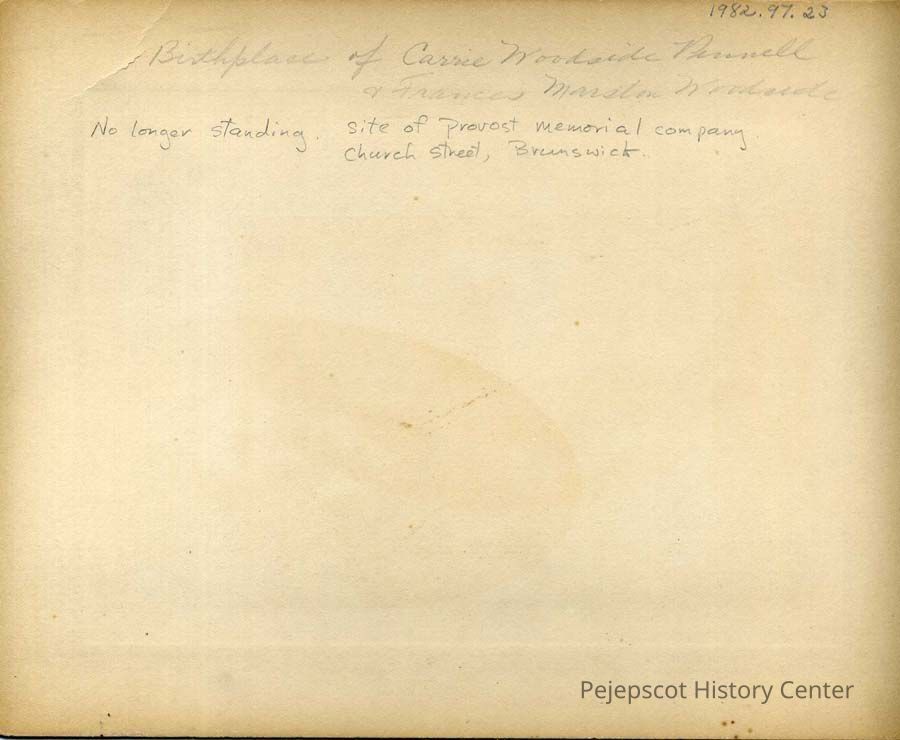 1982.97.23
Birthplace of Carrie Woodside Pennell
& Frances Marston Woodside
No longer standing. Site of Provost memorial company.
Church Street, Brunswick.
Pejepscot History Center